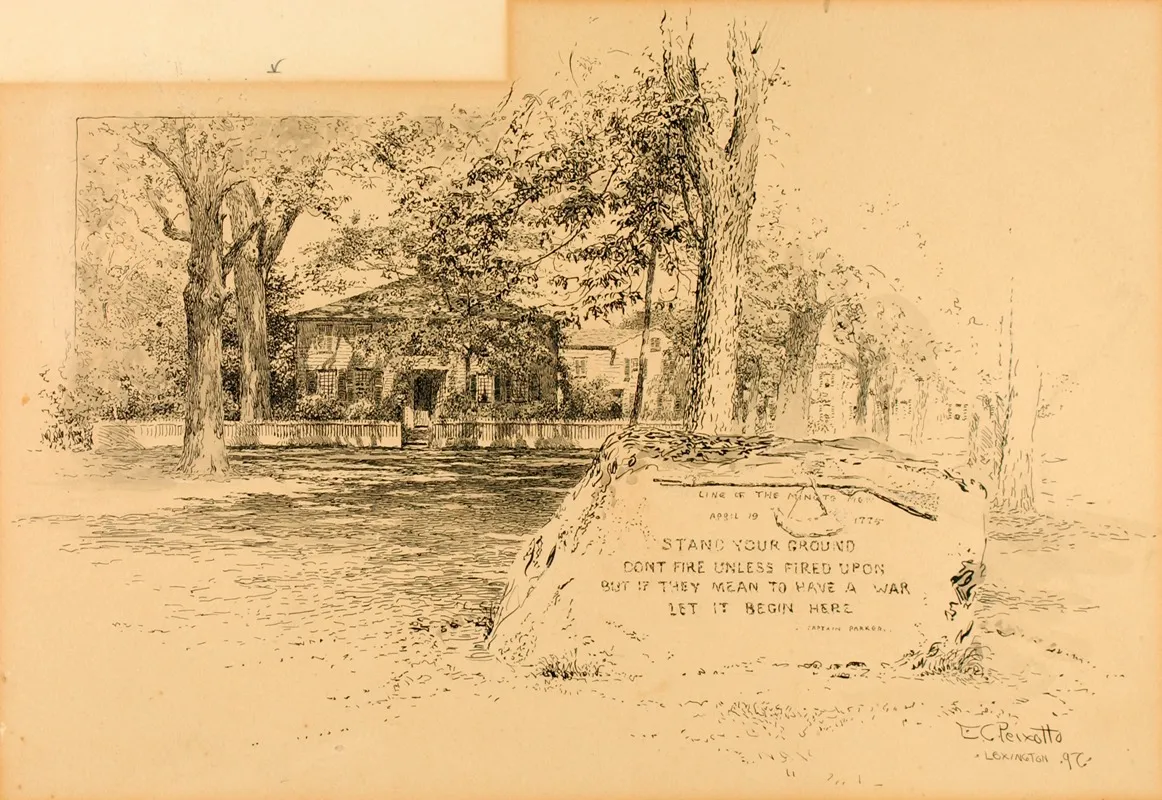 LINE OF THE MINUTE MEN
APRIL 19 1775
STAND YOUR GROUND
DONT FIRE UNLESS FIRED UPON
BUT IF THEY MEAN TO HAVE A WAR
LET IT BEGIN HERE
CAPTAIN PARKER.
E C Peixotto
LEXINGTON